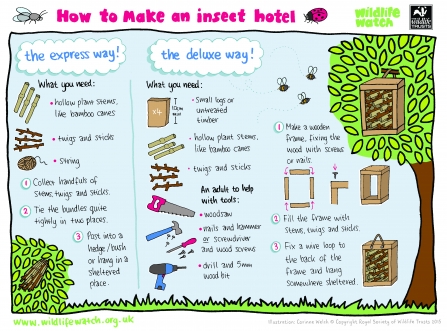 How to Make an insect hotel
wildlife
watch
the
wildlife
trusts
the express way!
What you need:
• hollow plant stems,
like bamboo canes
• twigs and sticks
• String
1 Collect handfuls of
stems, twigs and sticks.
2 Tie the bundles quite
tightly in two places.
3 Post into a
hedge/bush
or hang in a
sheltered
place.
the deluxe way!
What you need:
x4
• Small logs or
untreated
timber
• hollow plant stems,
like bamboo canes
• twigs and sticks
An adult to help
with tools:
• woodsaw
• nails and hammer
or screwdriver
and wood screws
• drill and 5mm
wood bit
1 Make a wooden
frame, fixing the
wood with screws
or nails.
2 Fill the frame with
stems, twigs and sticks.
3 Fix a wire loop to
the back of the
frame and hang
somewhere sheltered.
www.wildlifewatch.org.uk
Illustration: Corinne Welch © Copyright Royal Society of Wildlife Trusts 2015